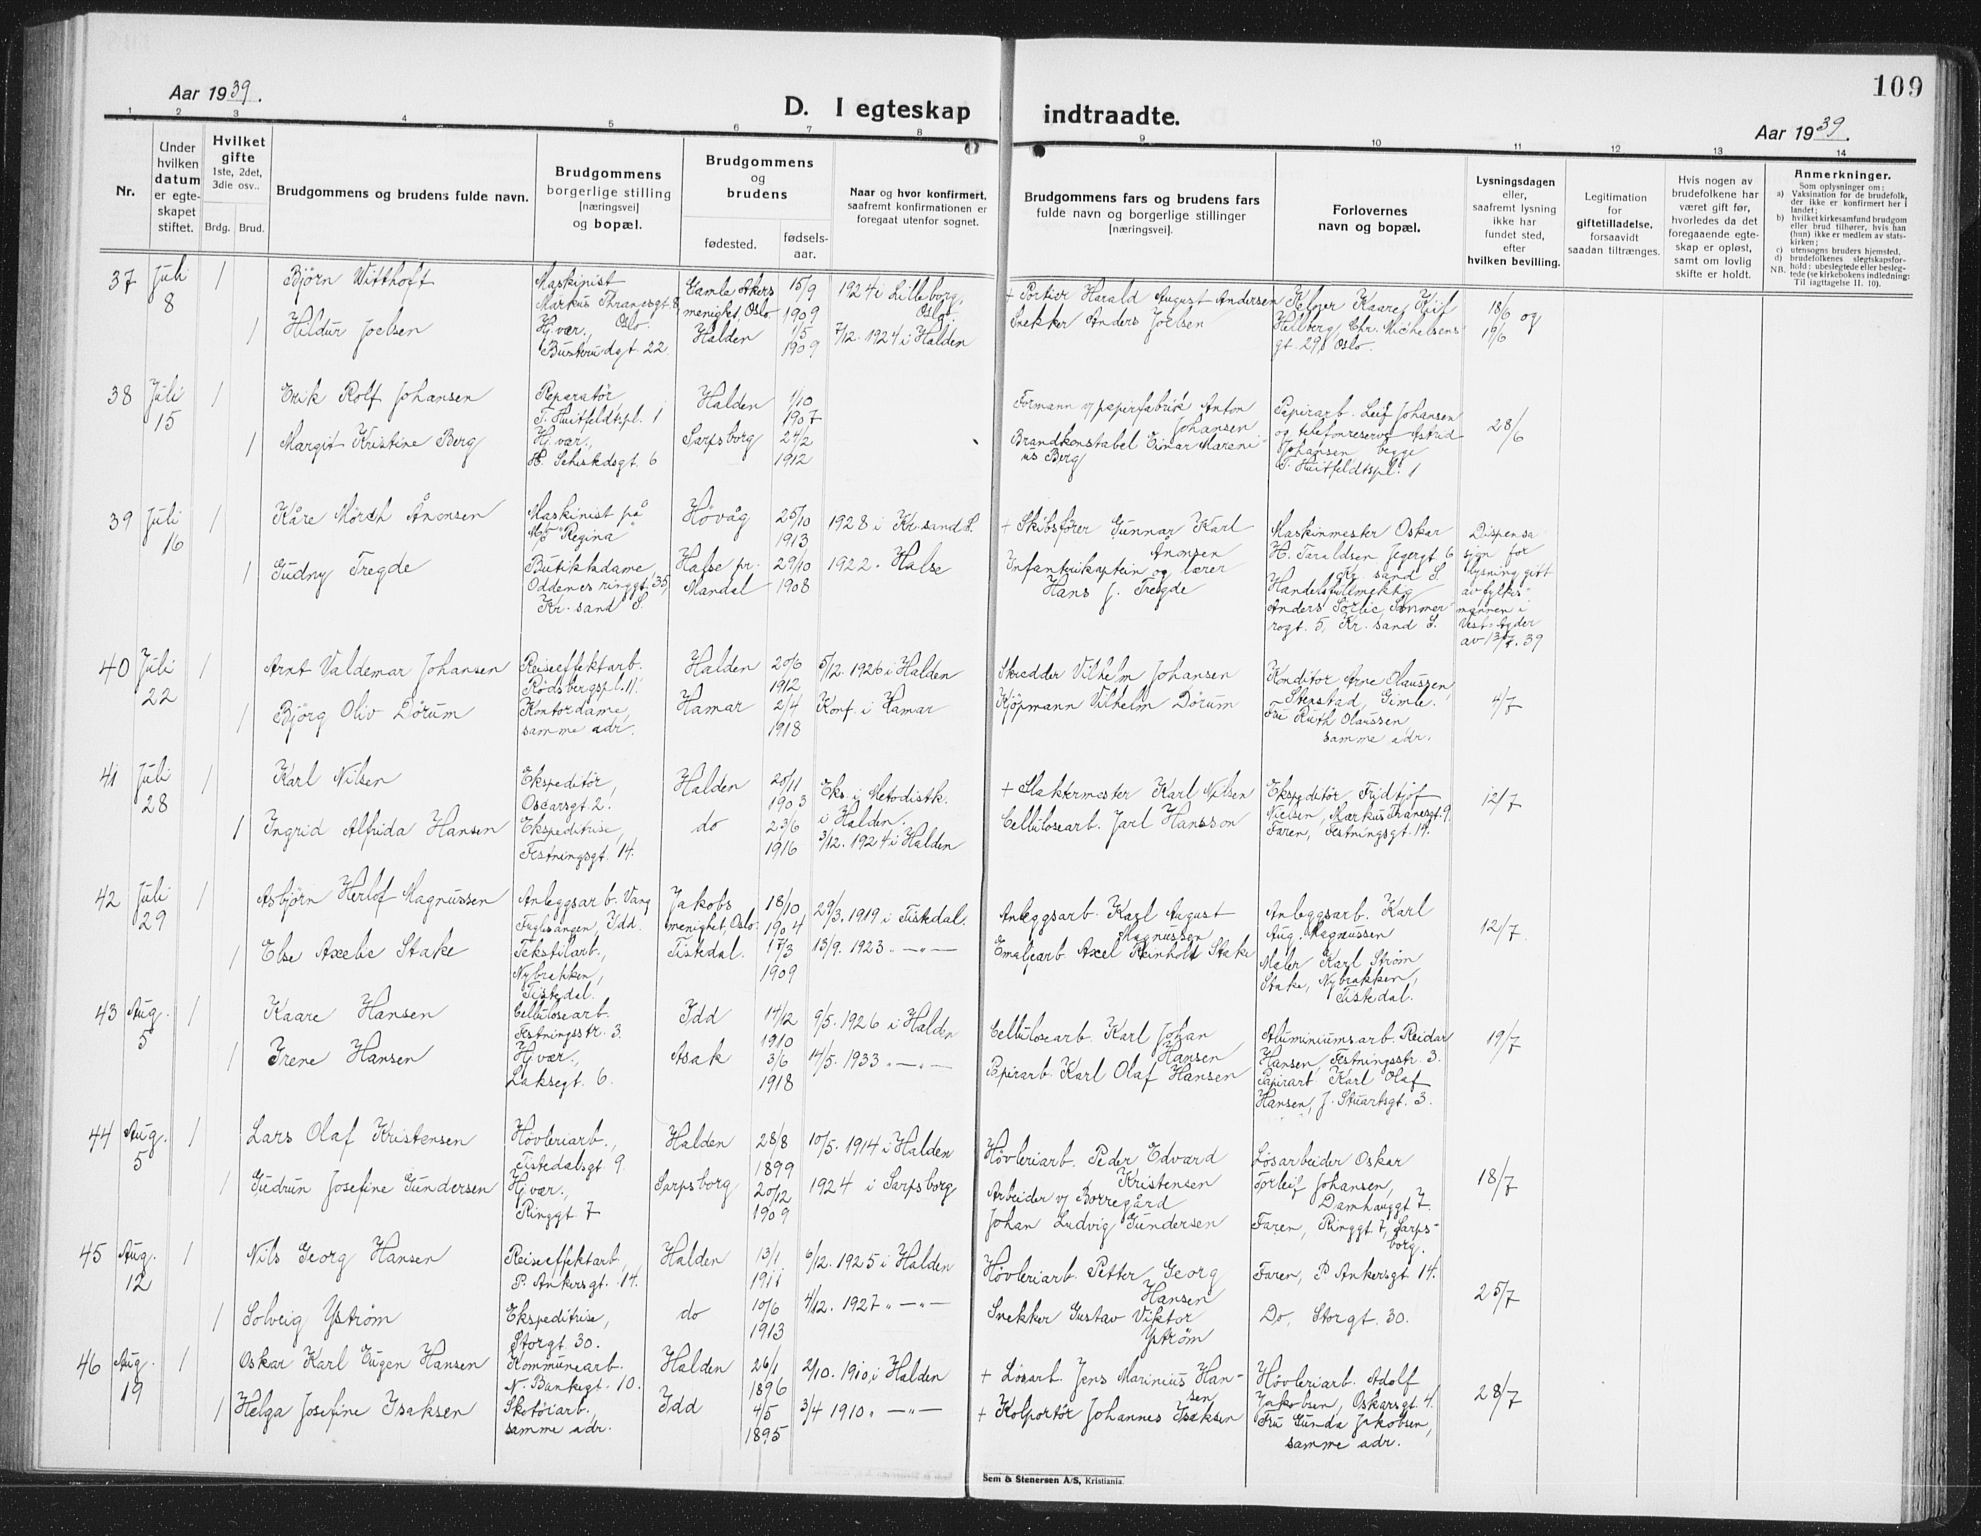 109
Aar 1939.
D. I egteskap indtraadte.
Aar 1939.
1 2 3 4 5 6 7 8 9 10 11 12 13 14
Nr.
Under hvilken datum er egteskapet stiftet.
Hvilket gifte 1ste, 2det, 3die osv..
Brdg. Brud.
Brudgommens og brudens fulde navn.
Brudgommens borgerlige stilling [næringsvei] og bopæl.
Brudgommens og brudens
fødested. fødselsaar.
Naar og hvor konfirmert, saafremt konfirmationen er foregaat utenfor sognet.
Brudgommens fars og brudens fars fulde navn og borgerlige stillinger [næringsvei].
Forlovernes navn og bopæl.
Lysningsdagen eller, saafremt lysning ikke har fundet sted, efter hvilken bevilling.
Legitimation for giftetilladelse, forsaavidt saadan tiltrænges.
Hvis nogen av brudefolkene har været gift før, hvorledes da det foregaaende egteskap er opløst, samt om lovlig skifte er holdt.
Anmerkninger.
Som oplysninger om:
a) Vaksination for de brudefolk, der ikke er konfirmert her i landet;
b) hvilket kirkesamfund brudgom eller brud tilhører, hvis han (hun) ikke er medlem av statskirken;
c) utensogns bruders hjemsted.
d) brudefolkenes slegtskapsforhold: ubeslegtede eller beslegtede (se kirkebokens indledning: Til iagttagelse II. 10).
NB.
37 Juli 8 1 Bjørn Witthoft Maskinist Markus Thranesgt. 8, Oslo. Gamle Akers menighet, Oslo 15/9 1909 1924 i Lilleborg, Oslo. + Portier Harald August Andersen Kelner Kaare Leif Hellberg, Chr. Michelsens gt. 29, Oslo. 18/6 og 19/6
1 Hildur Joelsen Hj.vær., Buskrudgt. 22. Halden 1/5 1909 7/12. 1924 i Halden Snekker Anders Joelsen
38 Juli 15 1 Erik Rolf Johansen Reparatør T. Huitfeldtspl. 1 Halden 1/10 1907 Formann v/ papirfabrik Anton Johansen Papirarb. Leif Johansen og telefonreserve Astrid Johansen begge T. Huitfeldtspl. 1 28/6
1 Margit Kristine Berg Hj.vær., Sarpsborg 24/2 1912 Brandkonstabel Einar Marenius Berg
39 Juli 16 1 Kåre Mørch Ånonsen Maskinist på M/S "Regina" Høvåg 25/10 1913 1928 i Kr.sand S. + Skibsfører Gunnar Karl Ånonsen Maskinmester Oskar H. Taraldsen Jegergt. 6 Kr. sand S. Dispensasjon for lysning gitt av fylkesmannen i Vest-Agder av 13/7. 39
1 Gudny Tregde Butikkdame, Oddernes ringgt. 35, Kr. sand S. Halse pr. Mandal 29/10 1908 1922. Halse Infanterikaptein og lærer Hans J. Tregde Handelsfullmektig Anders Sørlie, Kr. sand S.
40 Juli 22 1 Arnt Valdemar Johansen Reiseeffektarb. Rødsbergspl. 11. Halden 20/6 1912 5/12. 1926 i Halden Skredder Vilhelm Johansen Konditor Arne Olaussen, Stenstad, Gimle. 4/7
1 Bjørg Oliv Dørum Kontordame, samme adr. Hamar 2/4 1918 Konf. i Hamar Kjøpmann Vilhelm Dørum Fru Ruth Olaussen samme adr.
41 Juli 28 1 Karl Nilsen Ekspeditør, Oscarsgt. 2. Halden 25/11 1903 Eks. i Metodistk. i Halden. + Slaktermester Karl Nilsen Ekspeditør Fridtjof Nielsen, Markus Thranesgt. 9. 12/7
1 Ingrid Alfrida Hansen Ekspeditrise, Festningsgt. 14. do 23/6 1916 3/12. 1924 i Halden Cellulosearb. Jarl Hansson Faren, Festningsgt. 14.
42 Juli 29 1 Asbjørn Herlof Magnussen Anleggsarb. Vang Fuglesangen, Idd. Jakobs menighet, Oslo. 18/10 1904 29/3. 1919 i Tistedal. Anleggsarb. Karl August Magnussen Anleggsarb. Karl Aug. Magnussen 12/7.
1 Else Axelie Stake Tekstilarb., Nybrakken, Tistedal. Tistedal. 17/3 1909 13/9. 1923 „ — „ — Emaljearb. Axel Reinholt Stake Maler Karl Strøm Stake, Nybrakken, Tistedal.
43 Aug. 5 1 Kaare Hansen Cellulosearb. Festningsstr. 3. Idd 14/12 1910 9/5. 1926 i Halden Cellulosearb. Karl Johan Hansen Aluminiumsarb. Reidar Hansen, Festningsstr. 3. 19/7
1 Irene Hansen Hj.vær., Laksegt. 6. Asak 3/6 1918 14/5. 1933 „ — „ — Papirarb. Karl Olaf Hansen Papirarb. Karl Olaf Hansen, J. Stuartsgt. 3.
44 Aug. 5 1 Lars Olaf Kristensen Høvleriarb., Tistedalsgt. 9. Halden 28/8 1899 10/5. 1914 i Halden Høvleriarb. Peder Edvard Kristensen Løsarbeider Oskar Torleif Johansen, Damhauggt. 7. 18/7
1 Gudrun Josefine Gundersen Hj.vær., Ringgt. 7 Sarpsborg 20/12 1909 1924 i Sarpsborg Arbeider v/ Borregård Johan Ludvig Gundersen Faren, Ringgt. 7, Sarpsborg.
45 Aug. 12 1 Nils Georg Hansen Reiseeffektarb., P. Ankersgt. 14. Halden 13/1 1911 6/12. 1925 i Halden Høvleriarb. Petter Georg Hansen Faren, P. Ankersgt. 14. 25/7
1 Solveig Ystrøm Ekspeditrise, Storgt. 30. do 10/6 1913 4/12. 1927 „ — „ — Snekker Gustav Viktor Ystrøm Do, Storgt. 30.
46 Aug. 19 1 Oskar Karl Eugen Hansen Kommunearb. N. Bankegt. 10. Halden 26/1 1896 2/10. 1910 i Halden + Løsarb. Jens Marinius Hansen Høvleriarb. Adolf Jakobsen, Oskarsgt. 4. 28/7
1 Helga Josefine Isaksen Skotøiarb. samme adr. Idd 4/5 1895 3/4 1910 „ — „ — + Kolportør Johannes Isaksen Fru Gunda Jakobsen, samme adr.
Sem & Stenersen A/S, Kristiania.